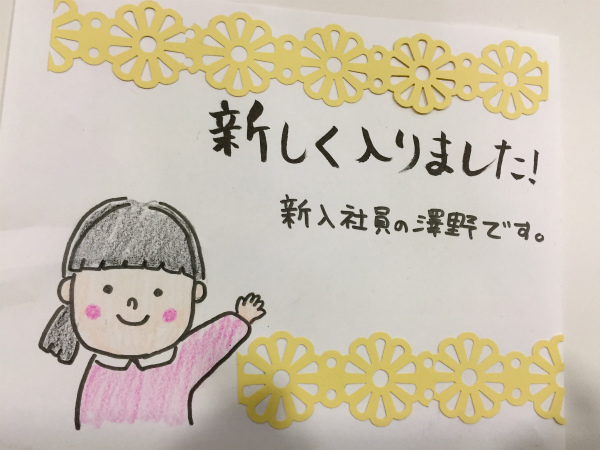 新しく入りました!
新入社員の澤野です。